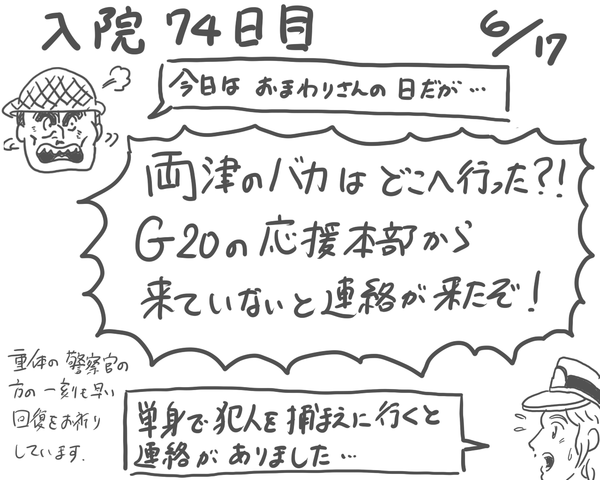 入院 74日目
6/17
今日は おまわりさんの 日だが…
両津のバカは どこへ行った?!
G20の 応援本部から
来ていないと 連絡が 来たぞ!
重体の 警察官の
方の 一刻も早い
回復をお祈り
しています.
単身で 犯人を 捕まえに 行くと
連絡が ありました…